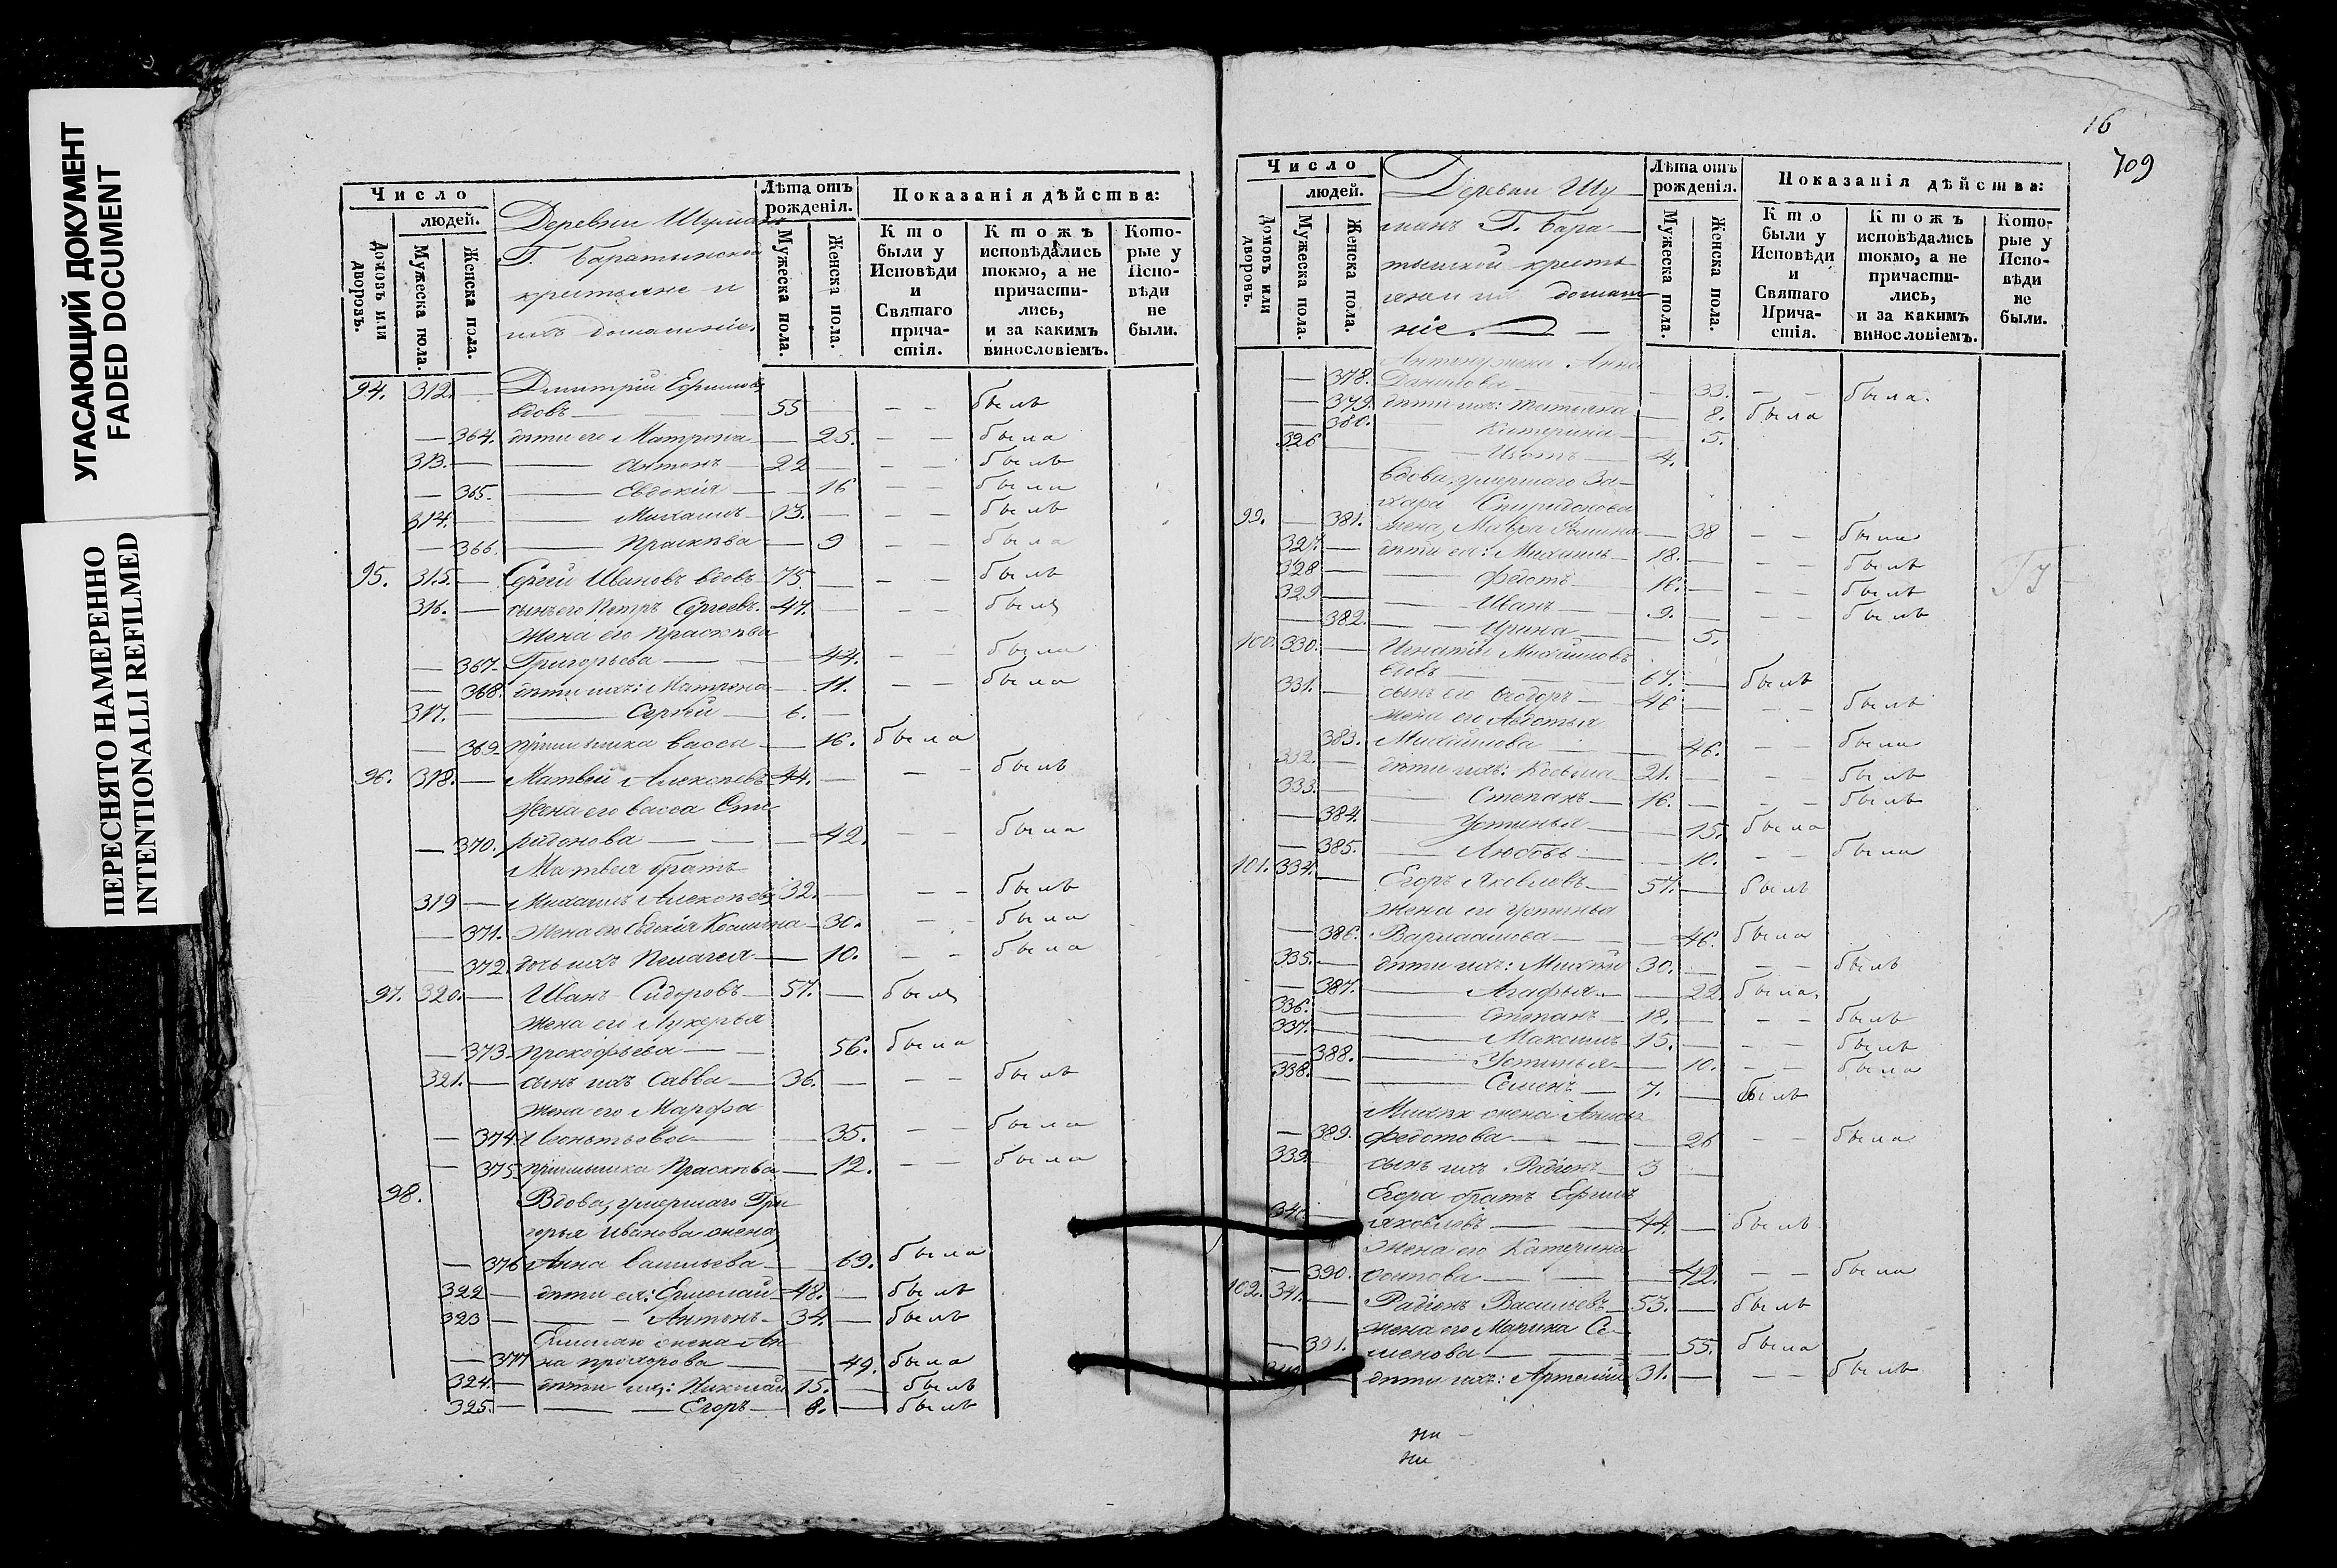 УГАСАЮЩИЙ ДОКУМЕНТ
FADED DOCUMENT
ПЕРЕСНЯТО НАМЕРЕННО
INTENTIONALLI REFILMED
Число
людей.
Домовъ или дворовъ.
Мужеска пола.
Женска пола.
Деревни Шуман
Г. Баратынской
крестьяне и
ихъ домашніе.
Лѣта отъ рожденія.
Мужеска пола.
Женска пола.
Показанія дѣйства:
Кто были у Исповѣди и Святаго причастія.
Ктожъ исповѣдались токмо, а не причастились, и за какимъ винословіемъ.
Которые у Исповѣди не были.
94. 312. — Дмитрій Ефимовъ
вдовъ — 55 — — — былъ
— 364. дѣти его Матрона — 25. — — была
313. — — Антонъ — 22 — — — былъ
— 365. — Евдокія — — 16 — — была
314. — — Михаилъ — 13. — — — былъ
— 366. — Прасковья — 9 — — была
95. 315. — Сергей Ивановъ вдовъ — 75 — — — былъ
316. — сынъ его Петръ Сергеевъ. 47. — — — былъ
Жена его Прасковья
— 367. Григорьева — — 44. — — была
— 368. дѣти ихъ: Матрона — 11. — — была
317. — — Сергей — 6. —
— 369. пріимышка Васса — — 16. была
96. 318. — Матвей Алексеевъ 44. — — — былъ
Жена его Васса Спи
— 370. ридонова — — — 42. — — была
Матвея братъ
319 — Михаилъ Алексеевъ 32. — — — былъ
— 371. Жена его Евдокія Космина — 30. — — была
— 372. дочь ихъ Пелагея — 10. — — была
97. 320. — Иванъ Сидоровъ — 57. — былъ
Жена его Лукерья
— 373. Прокофьева — — 56. была
321. — сынъ ихъ Савва — 36. — — — былъ
Жена его Марфа
— 374. Леонтьева — — 35. — — была
— 375. пріимышка Прасковья — 12. — — была
98. Вдова, умершаго Гри
горья Иванова жена
— 376 Анна Савельева — 69. была
322 — дѣти ея: Ермолай — 48. — былъ
323 — — — Антонъ — 34. — былъ
Ермолаю жена Ан
— 377 на Прохорова — — 49. была
324. — дѣти ихъ: Николай 15. — былъ
325. — — — Егоръ — 8. — былъ
16
709
Число
людей.
Домовъ или дворовъ.
Мужеска пола.
Женска пола.
Деревни Шу
манъ Г. Бара-
тынской кресть
яне и ихъ домаш
ніе.
Лѣта отъ рожденія.
Мужеска пола.
Женска пола.
Показанія дѣйства:
Кто были у Исповѣди и Святаго Причастія.
Ктожъ исповѣдались токмо, а не причастились, и за какимъ винословіемъ.
Которые у Исповѣди не были.
Антону жена Анна
— 378. Данилова — — 33. — — была.
— 379. дѣти ихъ: Татьяна — 8. была
— 380. — Катерина — 5.
326 — — 4.
Вдова, умершаго За-
хара Спиридонова
99. — 381. жена, Мавра — 38 — — была
327. — дѣти ея: Михаилъ — 18. — — — былъ
328 — — Федотъ 16. — — — былъ
329 — — Иванъ 9. — — — былъ
— 382. — — Ирина — — 5.
100. 330. — Игнатій Михайловъ
вдовъ — 67. — былъ
331. — сынъ его Ѳедоръ — 46 — — — былъ
жена его Авдотья
— 383. Михайлова — — 46. — — была
332. — дѣти ихъ: Косьма 21. — — — былъ
333. — — Степанъ — 16. — — — былъ
— 384. — Устинья — — 15. была
— 385. — Любовь — — 10. — — была
101. 334. — Егоръ Яковлевъ — 57. — былъ
Жена его Устинья
— 386. Варлаамова — — 46. была
335. — дѣти ихъ: Михей 30. — — — былъ
— 387. — Агафья — — 22. была.
336. — — Степанъ — 18. — — — былъ
337. — — Максимъ — 15. — — — былъ
— 388. — Устинья — — 10. — — была
338. — — Семенъ — 7. — былъ
Михея жена
— 389. Федотова — — — 26 — — была
339. сынъ ихъ Радіонъ — 3 —
Егора братъ Ефимъ
340. — Яковлевъ — — 44. — былъ
Жена его Катерина
— 390. Осипова — — — 42. — — была
102. 341. — Радіонъ Васильевъ — 53. — былъ
жена его Марина Се-
— 391. менова — — — 55. была
342 дѣти ихъ: Артемій 31. — — — былъ